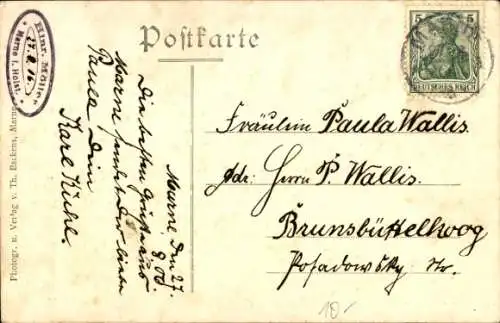 Hinr. Möller
27.8.06
Marne i. Holst.
Postkarte
5
DEUTSCHES REICH
Marne, den 27.
8.06.
Die besten Grüße aus
Marne sendet Dir liebe
Paula Dein
Karl Kühl.
Fräulein Paula Wallis.
Adr. Herrn P. Wallis.
Brunsbüttelkoog
Posadowsky Str.
Photogr. u. Verlag v. Th. Backens, Marne
10.-